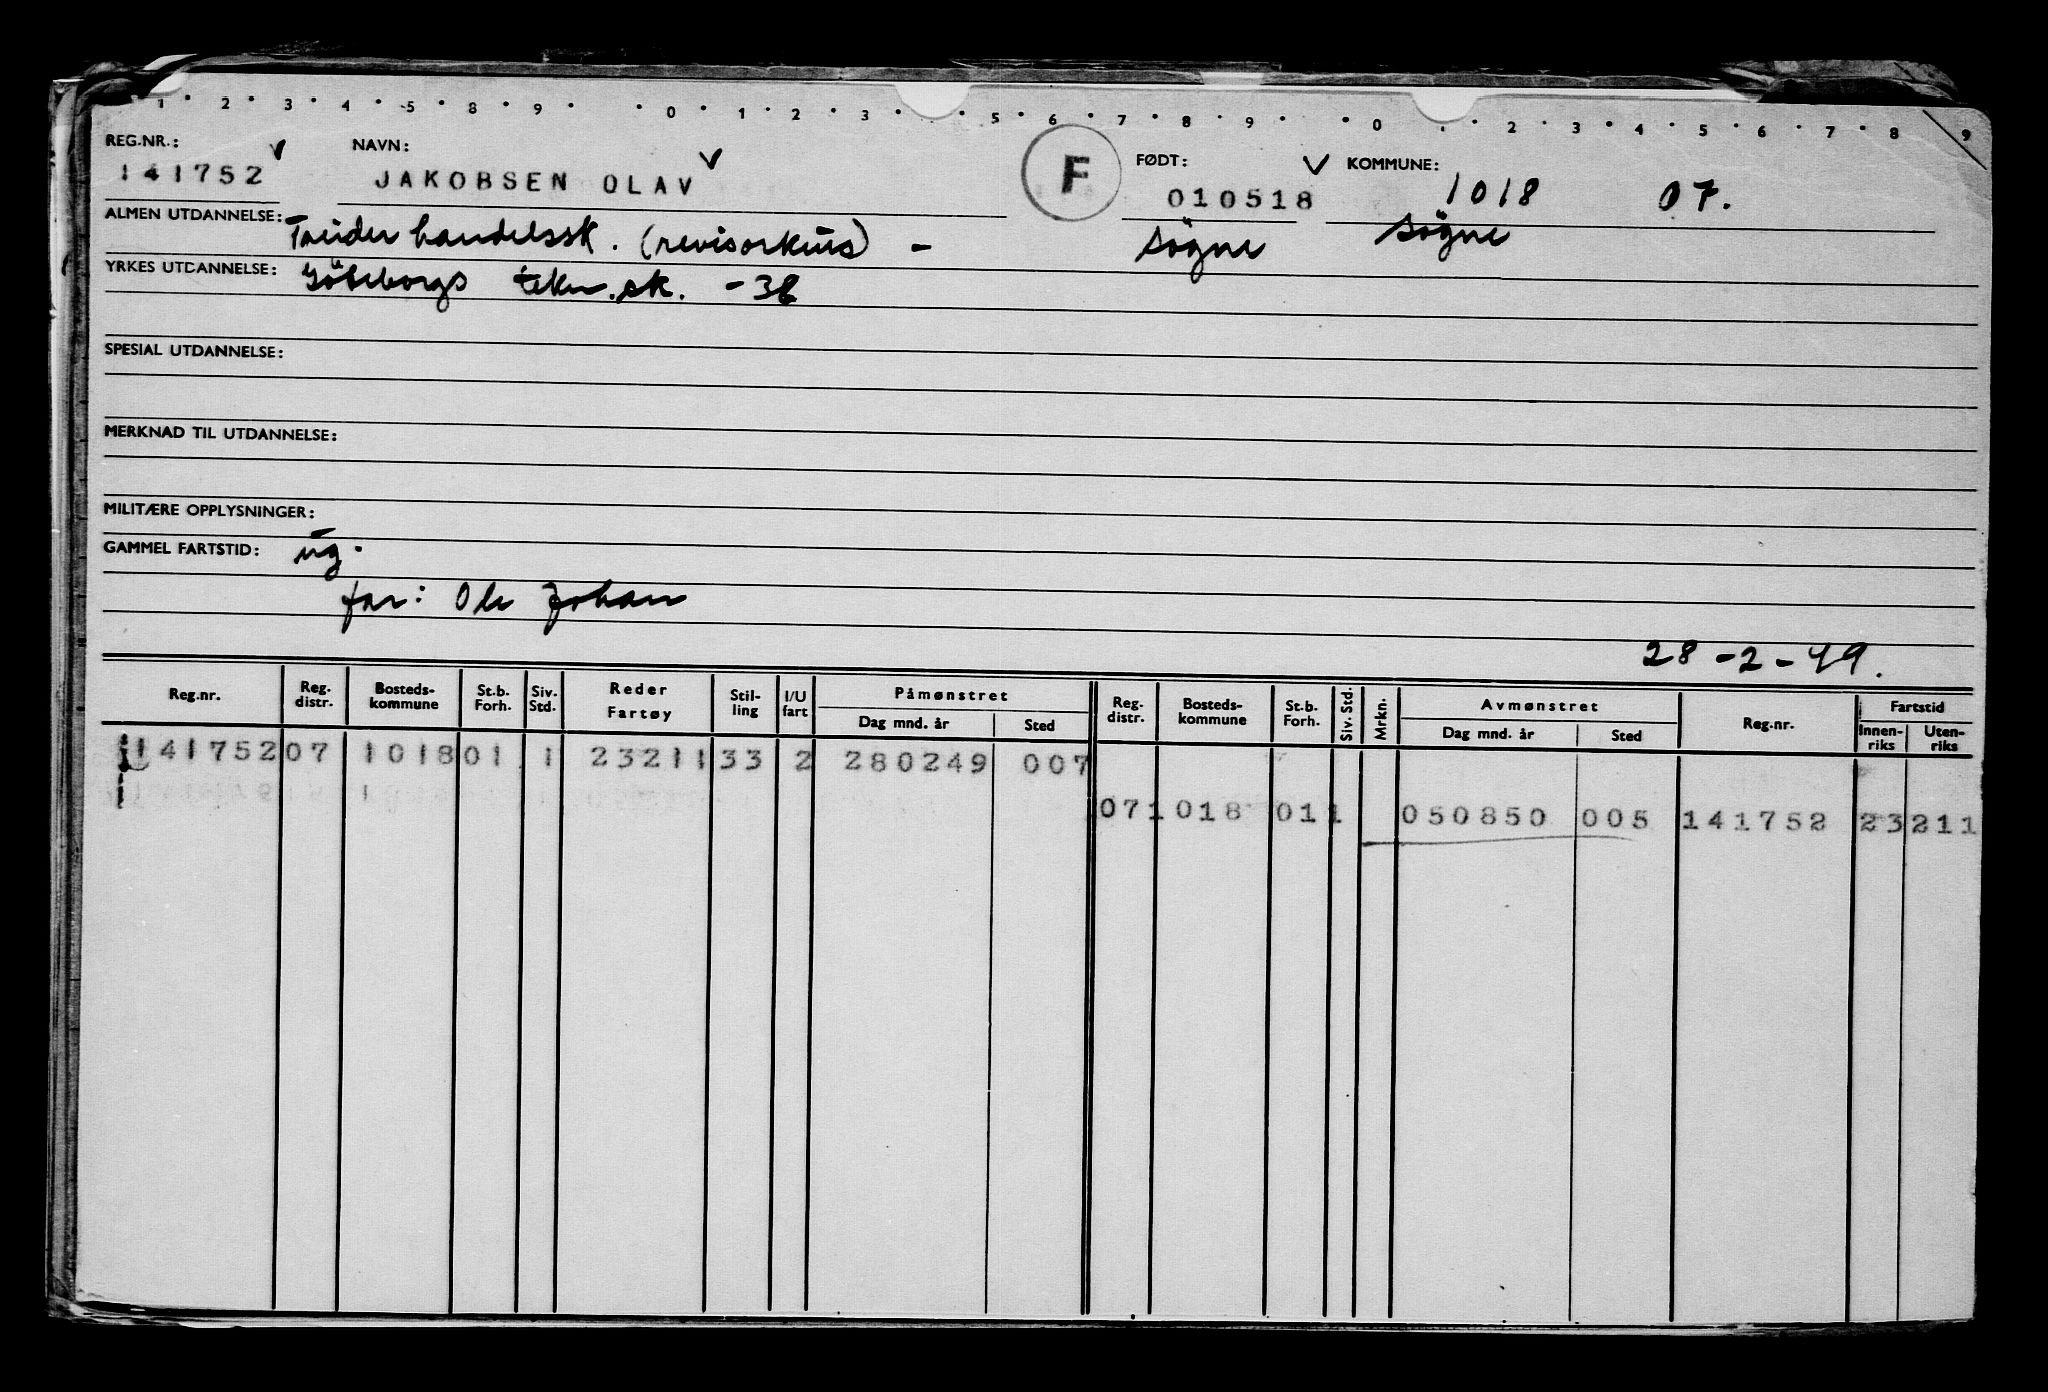 1 · 2 · 3 · 4 · 5 · 8 · 9 · · 0 · 1 · 2 · 3 · · 5 · 6 · 7 · 8 · 9 · · 0 · 2 · 3 · 4 · 5 · 6 · 7 · 8 9
REG.NR.: NAVN: F FØDT: KOMMUNE:
141752 JAKOBSEN OLAV 010518 1018 07.
ALMEN UTDANNELSE: handelssk. (revisorkurs) - Søgne Søgne
YRKES UTDANNELSE: Göteborgs tekn. sk. -38
SPESIAL UTDANNELSE:
MERKNAD TIL UTDANNELSE:
MILITÆRE OPPLYSNINGER:
GAMMEL FARTSTID: ug.
far: Ole Johan
28-2-49.
Reg.nr. Reg. distr. Bosteds-kommune St.b. Forh. Siv. Std. Reder Fartøy Stil-ling I/U fart Påmønstret Dag mnd. år Sted Reg. distr. Bosteds-kommune St.b. Forh. Siv. Std. Mrkn. Avmønstret Dag mnd. år Sted Reg.nr. Fartstid Innen-riks Uten-riks
141752 07 1018 01 1 23211 33 2 280249 007
07 1018 01 1 050850 005 141752 23211